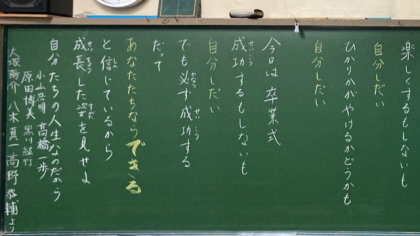 楽しくするもしないも
自分しだい
ひかりかがやけるかどうかも
自分しだい
今日は卒業式
成功するもしないも
自分しだい
でも必ず成功する
だって
あなたたちならできる
と信じているから
成長した姿を見せよ
自分たちの人生なのだから
高橋一歩
原田博美
大塚
八木真
高野
より